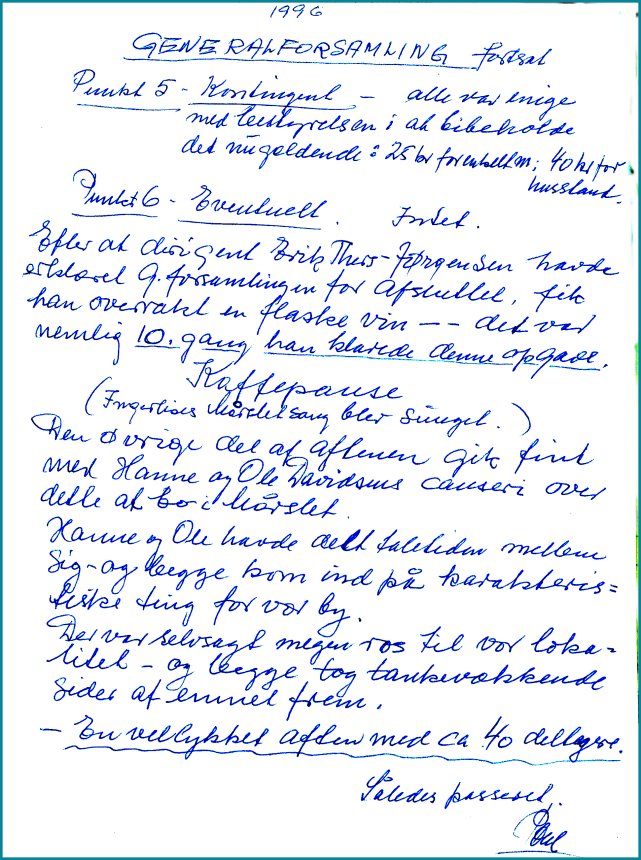 1996
GENERALFORSAMLING fortsat
Punkt 5 - Kontingent - alle var enige
med bestyrelsen i at bibeholde
det nugældende: 25 kr for enkeltm; 40 kr for
husstand.
Punkt 6 - Eventuelt. Intet.
Efter at dirigent Erik Thers-Jørgensen havde
erklæret g.forsamlingen for afsluttet, fik
han overrakt en flaske vin -- det var
nemlig 10. gang han klarede denne opgave.
Kaffepause
(Ingerlises Mårsletsang blev sunget.)
Den øvrige del af aftenen gik fint
med Hanne og Ole Davidsens causeri over
dette at bo i Mårslet.
Hanne og Ole havde delt taletiden mellem
sig - og begge kom ind på karakteris=
tiske ting for vor by.
Der var selvsagt megen ros til vor loka=
litet - og begge tog tankevækkende
sider af emnet frem.
- En vellykket aften med ca 40 deltagere.
Således passeret.